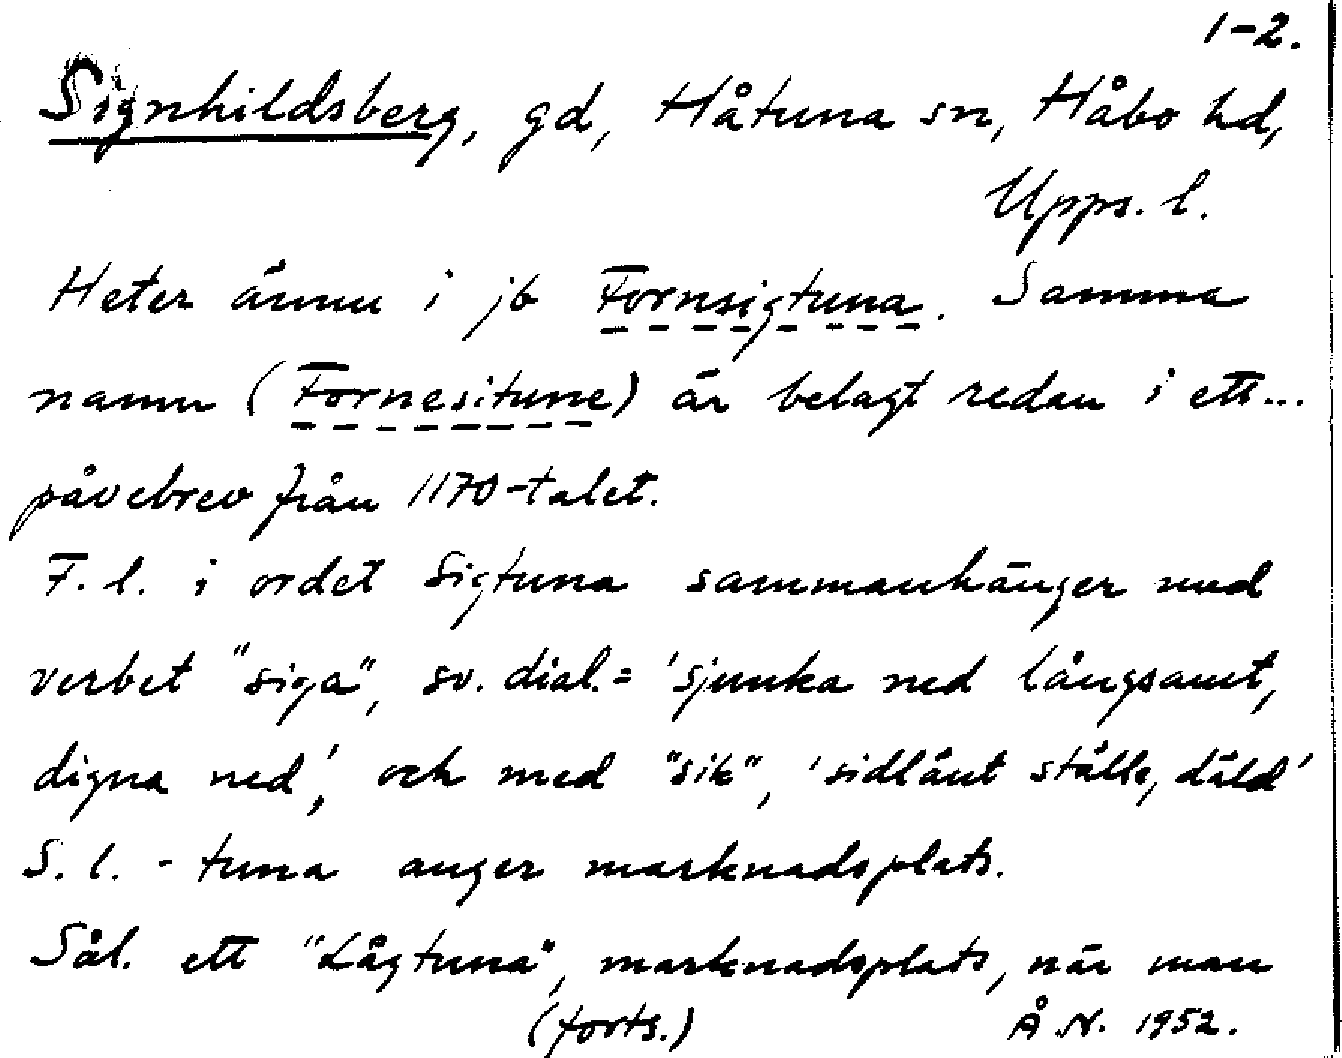 1-2.
Signhildsberg, gd, Håtuna sn, Håbo hd,
Upps. l.
Heter ännu i jb Fornsigtuna. Samma
namn (Fornesitune) är belagt redan i ett...
påvebrev från 1170-talet.
F. l. i ordet Sigtuna sammanhänger med
verbet "siga", sv. dial. = 'sjunka ned långsamt,
digna ned', och med "sik", 'sidlänt ställe, däld'
S. l. -tuna anger marknadsplats.
Sål. ett "Lågtuna", marknadsplats, när man
(forts.) Å.N. 1952.